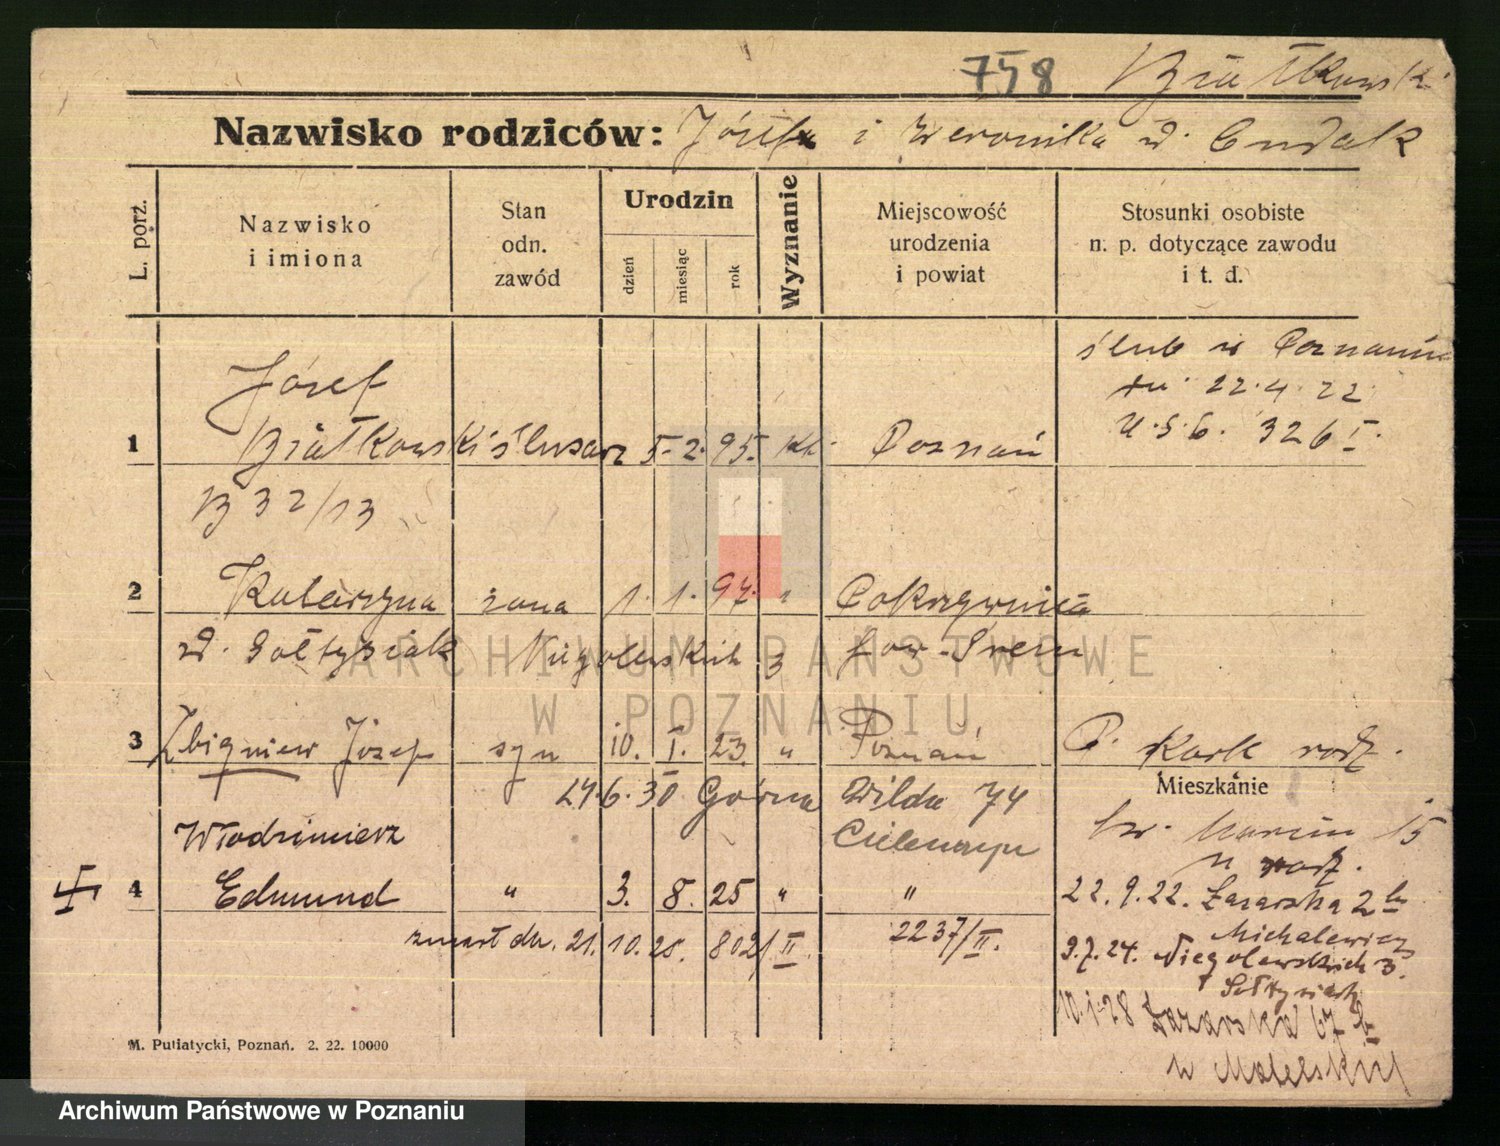 758 Białkowski
Nazwisko rodziców: Józef i Weronika d. Cudak
L. porz.
Nazwisko i imiona
Stan odn. zawód
Urodzin
dzień
miesiąc
rok
Wyznanie
Miejscowość urodzenia i powiat
Stosunki osobiste n. p. dotyczące zawodu i t. d.
ślub w Poznaniu
dn. 22.4.22
U.S.C. 326 I.
Józef
1 Białkowski ślusarz 5. 2. 95. kt. Poznań
B 32/13
2 Katarzyna żona 1. 1. 97. " Pokrzywnica
d. Sołtysiak Niegolewskich 3 pow. Śrem
3 Zbigniew Józef syn 10. I. 23. " Poznań P. Kark rodz.
24.6.30 Górna Wilda 74
Mieszkanie
św. Marcin 15
u rodz.
Włodzimierz
4 Edmund " 3. 8. 25 " "
22.9.22. Łazarska 2
zmarł dn. 21. 10. 25. 802/II. 2237/II.
Michalewicz
9.7.24. Niegolewskich 3.
Sołtysiak
10.1.28 Łazarska 67
M. Putiatycki, Poznań. 2. 22. 10000
ARCHIWUM PAŃSTWOWE
W POZNANIU
Archiwum Państwowe w Poznaniu